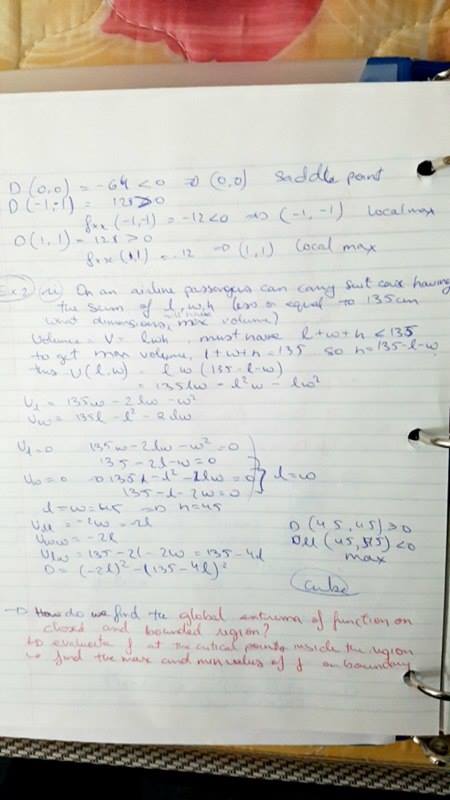 D(0,0) = -64 < 0 ⇒ (0,0) saddle point
D(-1,-1) = 128 > 0
fxx(-1,-1) = -12 < 0 ⇒ (-1,-1) local max
D(1,1) = 128 > 0
fxx(1,1) = -12 ⇒ (1,1) local max
Ex 2 On an airline passengers can carry suit case having
the sum of l, w, h less or equal to 135cm
what dimensions max volume?
Volume = V = lwh must have l+w+h < 135
to get max volume, l+w+h = 135 so h = 135-l-w
thus V(l,w) = lw(135-l-w)
= 135lw - l²w - lw²
Vl = 135w - 2lw - w²
Vw = 135l - l² - 2lw
Vl = 0 135w - 2lw - w² = 0
135 - 2l - w = 0
Vw = 0 ⇒ 135l - l² - 2lw = 0 } l = w
135 - l - 2w = 0
l = w = 45 ⇒ h = 45
Vll = -2w = -2l D(45,45) > 0
Vww = -2l (45,45) < 0
Vlw = 135 - 2l - 2w = 135 - 4l max
D = (-2l)² - (135-4l)²
cube
→ How do we find the global extrema of function on
closed and bounded region?
↳ evaluate f at the critical points inside the region
↳ find the max and min values of f on boundary